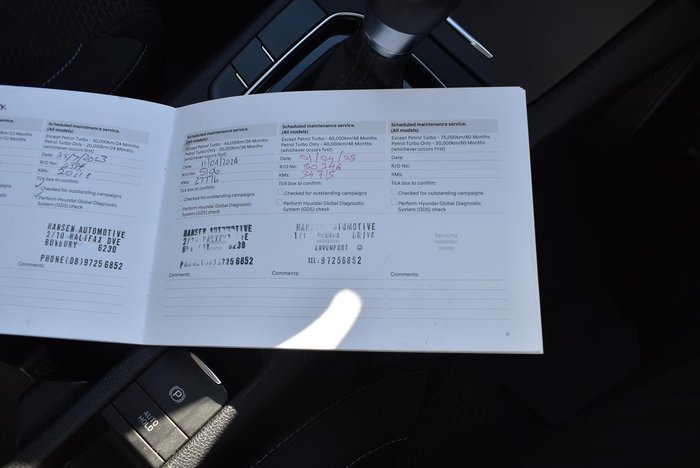 y.
Scheduled maintenance service.
(All models)
Except Petrol Turbo - 30,000km/24 Months
Petrol Turbo Only - 20,000km/24 Months
(whichever occurs first)
Date:
R/O No:
KMs:
Tick box to confirm:
Checked for outstanding campaigns
Perform Hyundai Global Diagnostic
System (GDS) check
HANSEN AUTOMOTIVE
2/10 HALIFAX DVE
BUNBURY 6230
PHONE(08)97256852
Comments:
Scheduled maintenance service.
(All models)
Except Petrol Turbo - 45,000km/36 Months
Petrol Turbo Only - 30,000km/36 Months
(whichever occurs first)
Date: 11/04/2024
R/O No:
KMs: 27776
Tick box to confirm:
Checked for outstanding campaigns
Perform Hyundai Global Diagnostic
System (GDS) check
HANSEN AUTOMOTIVE
6230
Comments:
Scheduled maintenance service.
(All models)
Except Petrol Turbo - 60,000km/48 Months
Petrol Turbo Only - 40,000km/48 Months
(whichever occurs first)
Date:
R/O No: 50246
KMs: 34715
Tick box to confirm:
Checked for outstanding campaigns
Perform Hyundai Global Diagnostic
System (GDS) check
HANSEN AUTOMOTIVE
DRIVE
DAVENPORT
TEL: 97256852
Comments:
Scheduled maintenance service.
(All models)
Except Petrol Turbo - 75,000km/60 Months
Petrol Turbo Only - 50,000km/60 Months
(whichever occurs first)
Date:
R/O No:
KMs:
Tick box to confirm:
Checked for outstanding campaigns
Perform Hyundai Global Diagnostic
System (GDS) check
Servicing
validation
stamp
Comments:
21
P
AUTO
HOLD